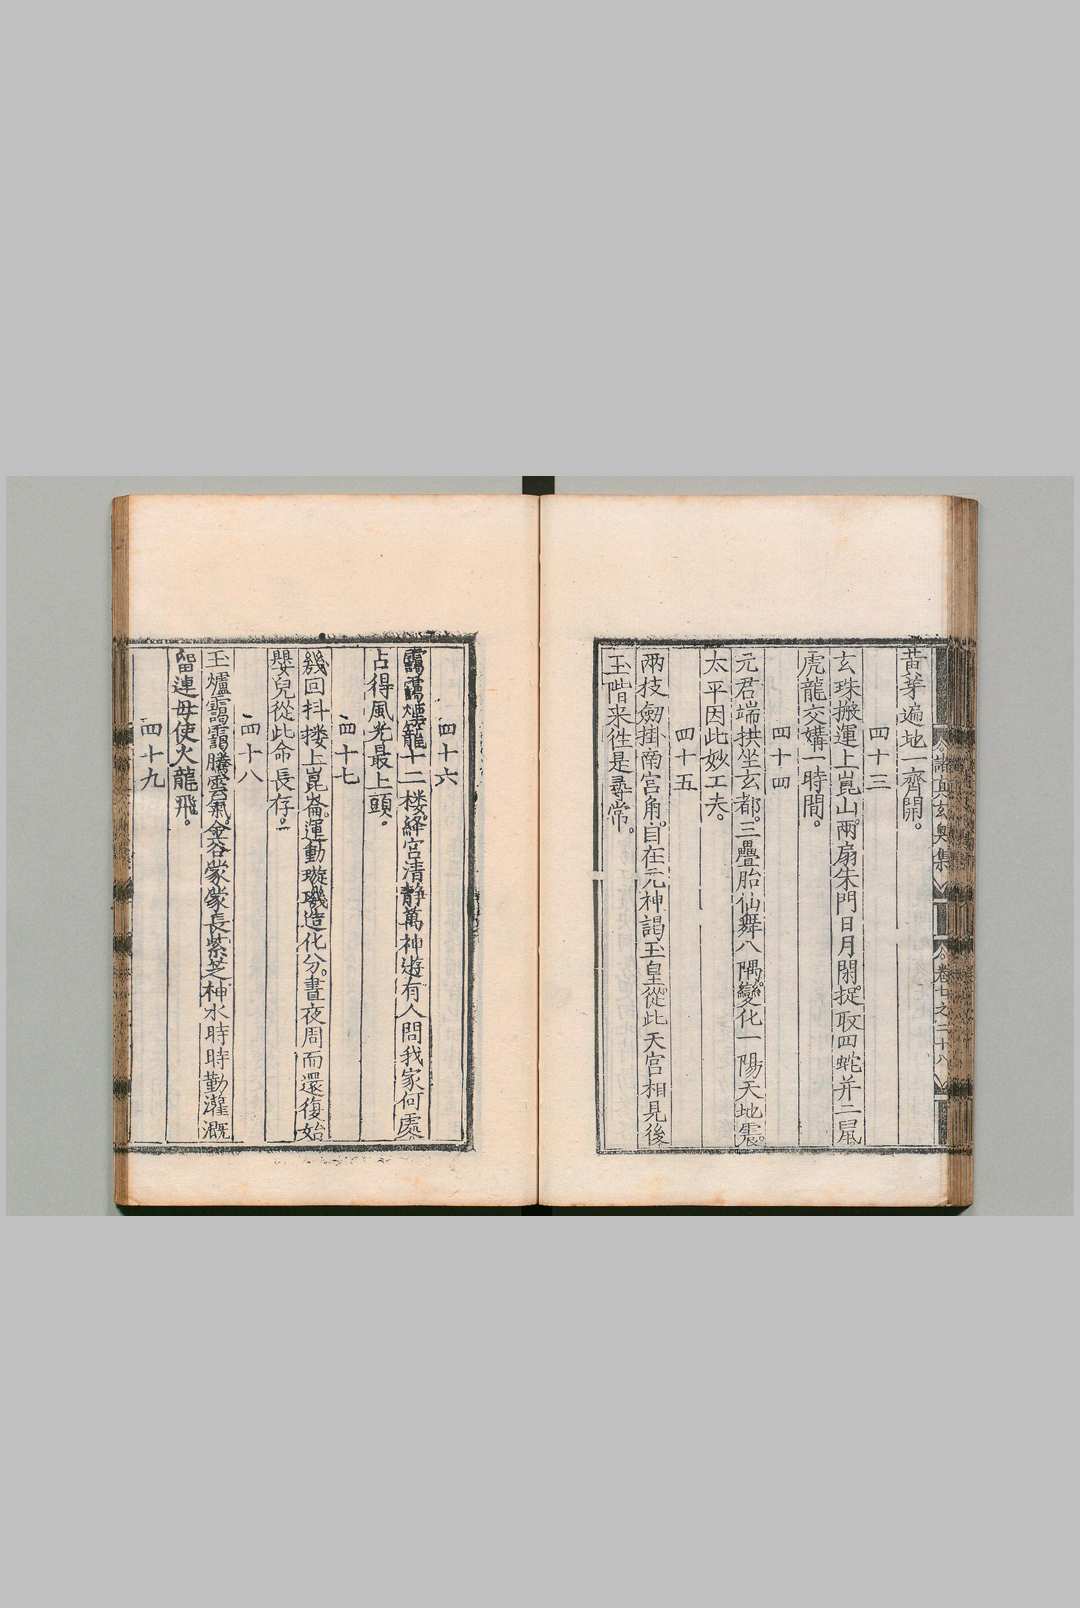 黃芽遍地一齊開。
四十三
玄珠搬運上崑山。兩扇朱門日月閑。捉取四蛇并二鼠
虎龍交媾一時間。
四十四
元君端拱坐玄都。三疊胎仙舞八隅。變化一陽天地震。
太平因此妙工夫。
四十五
两枝劒掛南宮角。自在元神謁玉皇。從此天宮相見後
玉階来徃是尋常。
諸眞玄奥集
卷七之二十八
四十六
靄靄煙籠十二楼。絳宮清静萬神遊。有人問我家何處
占得風光最上頭。
四十七
幾回抖摟上崑崙。運動璇璣造化分。晝夜周而還復始
嬰兒從此命長存。
四十八
玉爐靄靄騰雲氣。金谷蒙蒙長紫芝。神水時時勤灌溉
留連毋使火龍飛。
四十九